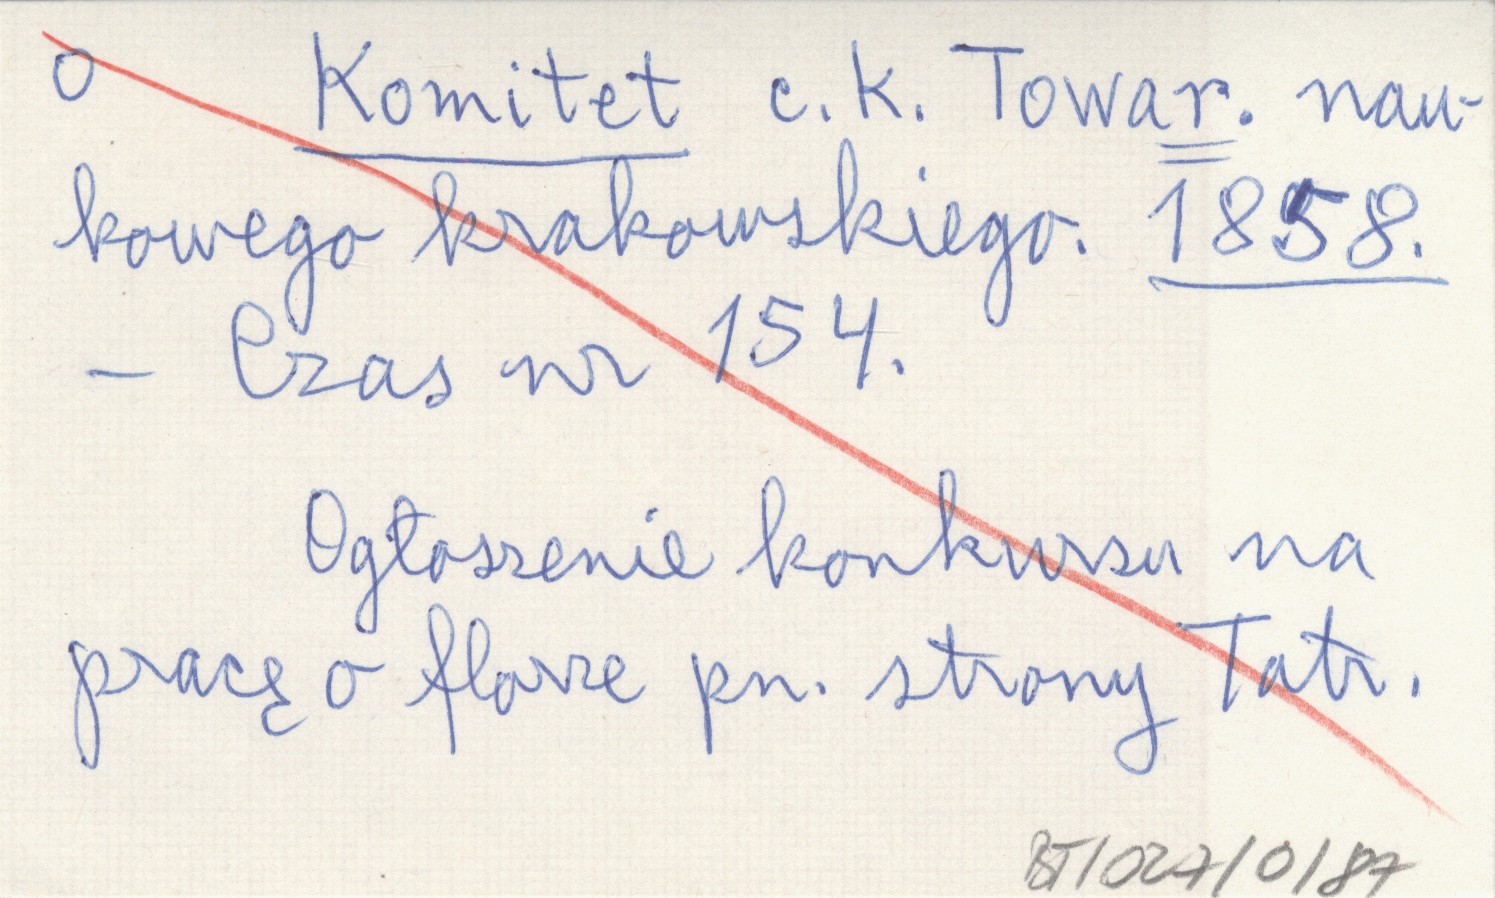 o Komitet c.k. Towar. nau-
kowego krakowskiego. 1858.
– Czas nr 154.
Ogłoszenie konkursu na
pracę o florze pn. strony Tatr.
BT/027/0/87